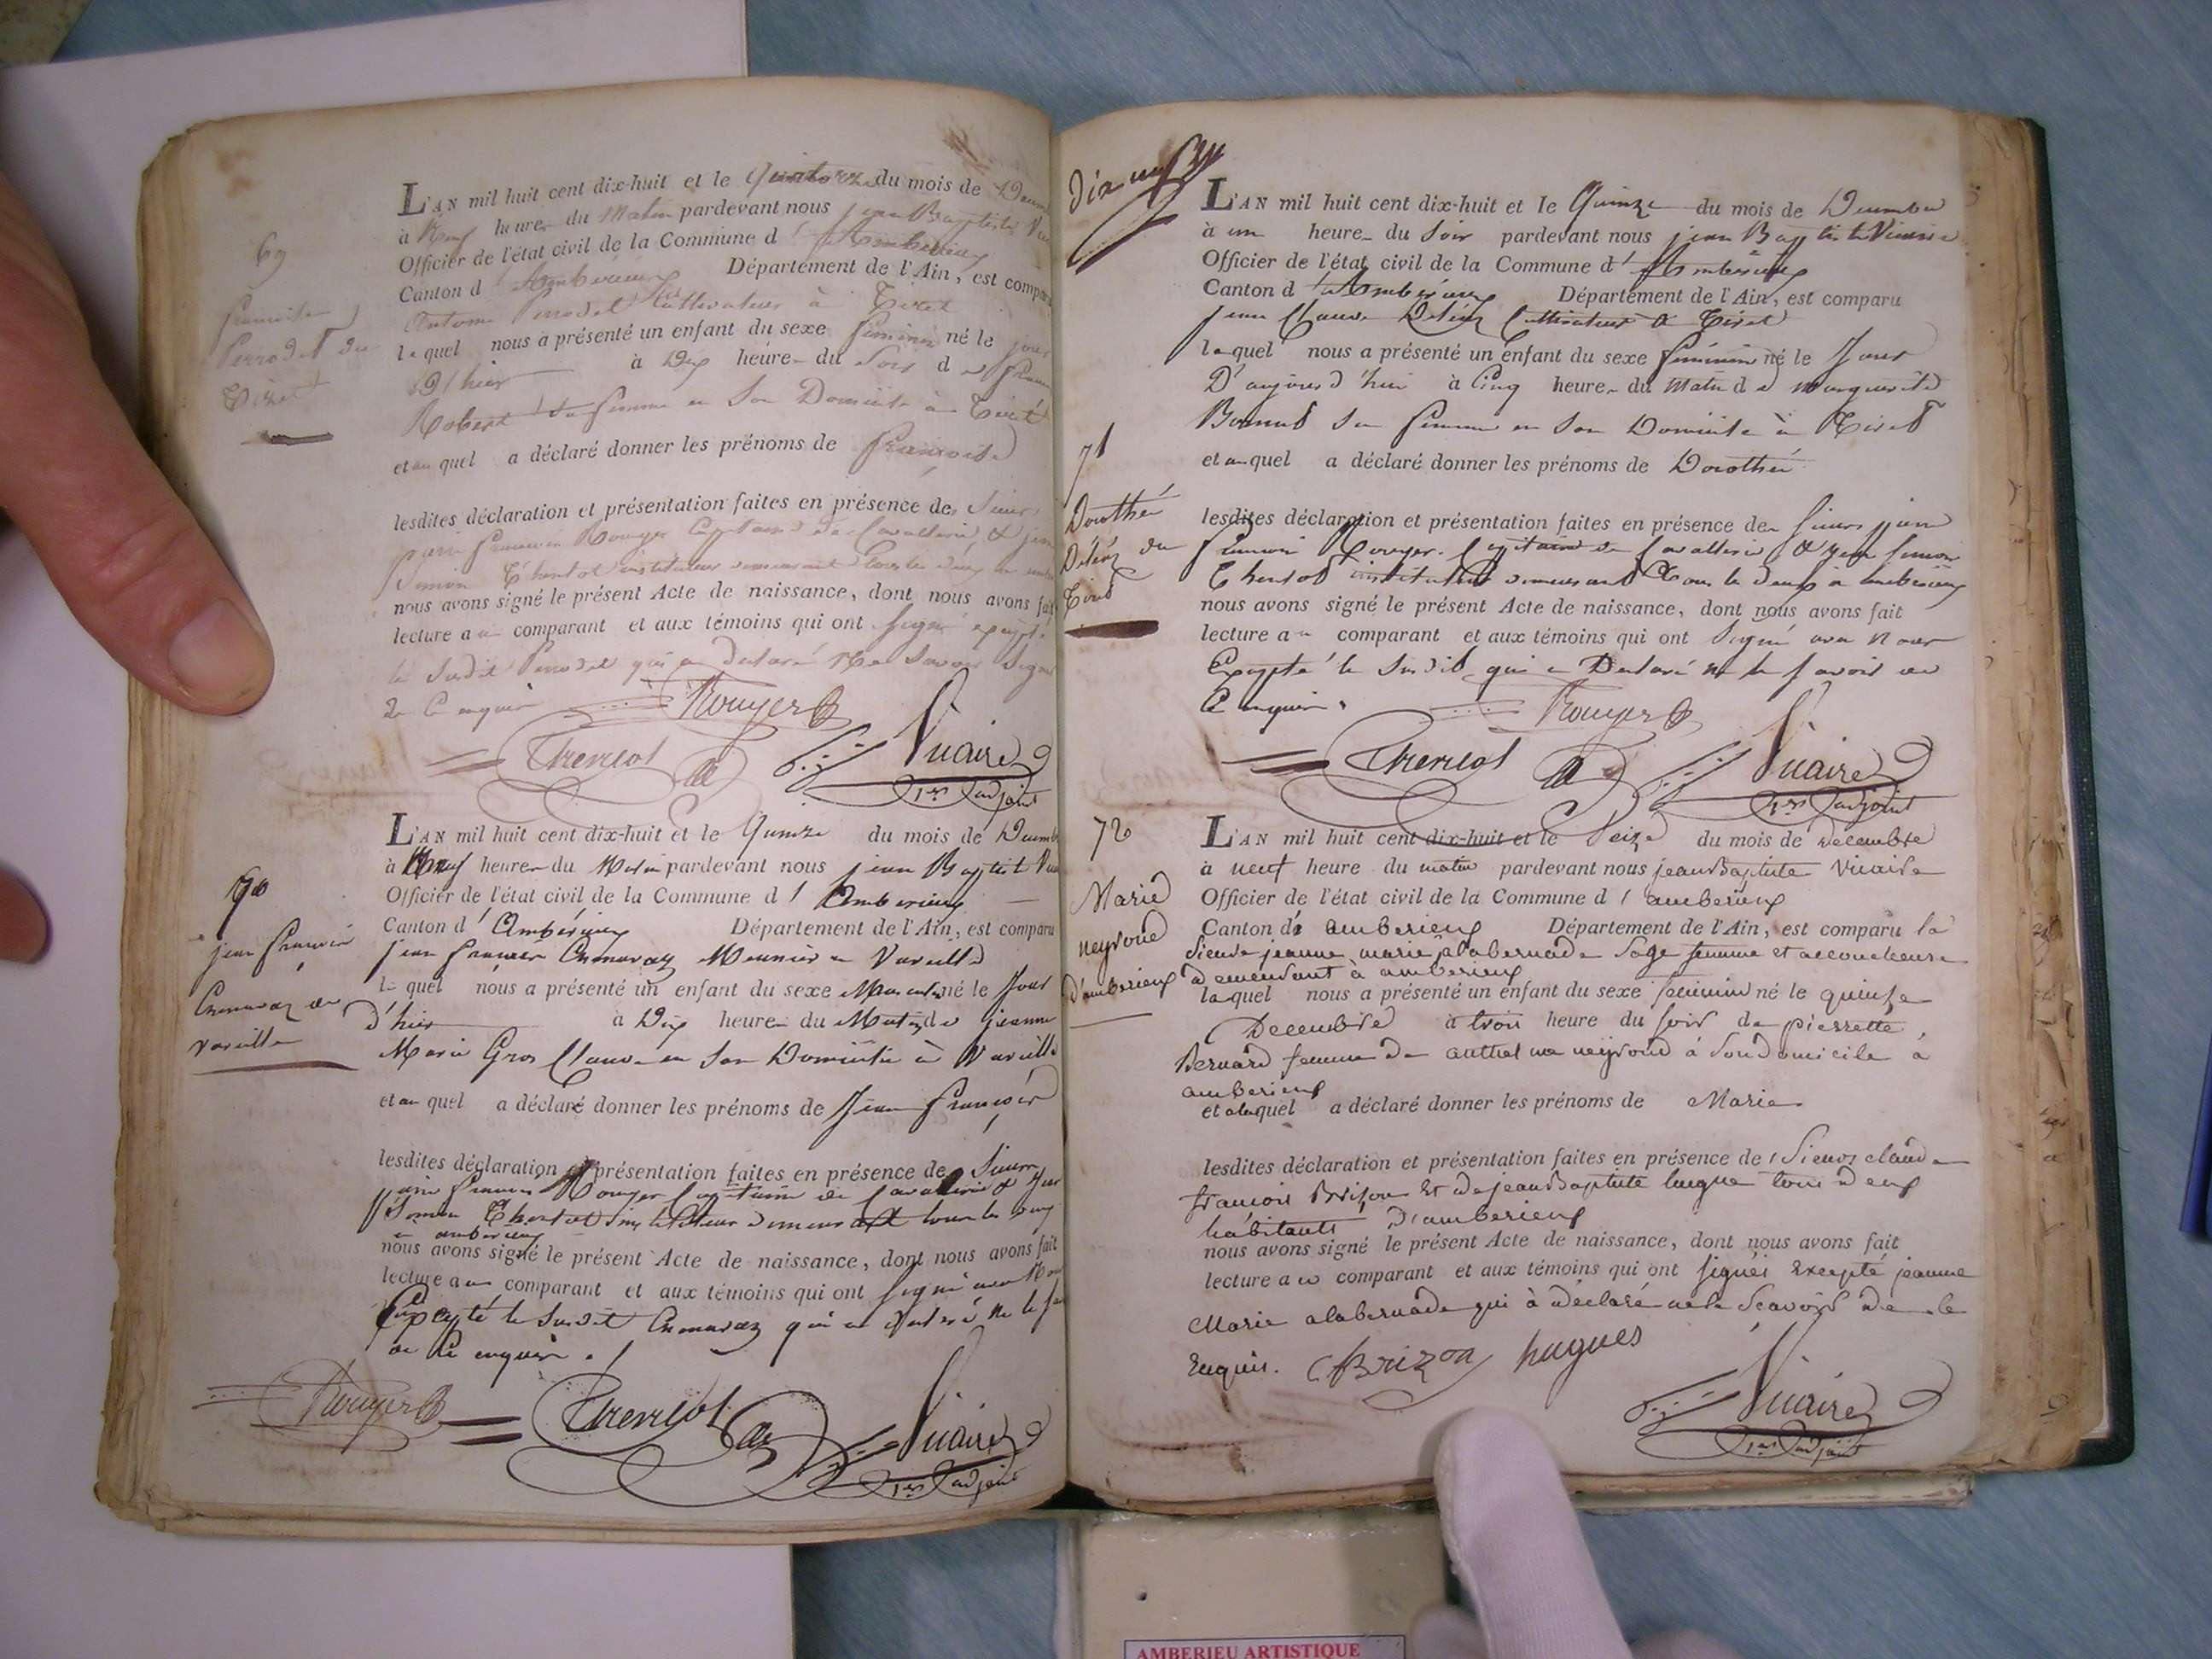 69
Perrodet du
Tiret
L'AN mil huit cent dix-huit et le Quatorze du mois de
à Neuf heure du Matin pardevant nous jean Baptiste
Officier de l'état civil de la Commune d' Amberieux
Canton d' Amberieux Département de l'Ain, est comparu
Antoine Perrodet Cultivateur à Tiret
lequel nous a présenté un enfant du sexe féminin né le jour
D'hier à Dix heure du Soir de
Robert sa femme en Son Domicile à Tiret
et auquel a déclaré donner les prénoms de françoise
lesdites déclaration et présentation faites en présence des Sieurs
Rouyer Capitaine de Cavallerie &
Simon Thentot instituteur demeurant tous les deux
nous avons signé le présent Acte de naissance, dont nous avons fait
lecture au comparant et aux témoins qui ont signé excepté
le Susdit Perrodet qui a Declaré Ne Savoir Signer
de Ce enquis
Rouyer
Thentot Vuaire
1er adjoint
70
jean françois
Chenavaz de
vareille
L'AN mil huit cent dix-huit et le Quinze du mois de
à Neuf heure du Matin pardevant nous jean Baptiste
Officier de l'état civil de la Commune d' Amberieux
Canton d' Amberieux Département de l'Ain, est comparu
jean françois Chenavaz Meunier a Vareille
lequel nous a présenté un enfant du sexe Masculin né le Jour
d'hier à Dix heure du Matin de jeanne
Marie Gros Claude en Son Domicile à Vareille
et auquel a déclaré donner les prénoms de Jean françois
lesdites déclaration et présentation faites en présence de Sieurs
Rouyer Capitaine de Cavallerie &
Simon Thentot instituteur demeurant tous les deux
a amberieux
nous avons signé le présent Acte de naissance, dont nous avons fait
lecture au comparant et aux témoins qui ont signé avec Nous
Excepté le Susdit Chenavaz qui a Declaré Ne le
de Ce enquis
Rouyer Thentot Vuaire
1er adjoint
L'AN mil huit cent dix-huit et le Quinze du mois de Decembre
à un heure du Soir pardevant nous jean Baptiste Vuaire
Officier de l'état civil de la Commune d' Amberieux
Canton d' Amberieux Département de l'Ain, est comparu
jean Claude Cultivateur à Tiret
lequel nous a présenté un enfant du sexe féminin né le Jour
D'aujourd'hui à Cinq heure du Matin de marguerite
sa femme en Son Domicile à Tiret
et auquel a déclaré donner les prénoms de Dorothée
71
Dorothée
du
Tiret
lesdites déclaration et présentation faites en présence de Sieurs
Rouyer Capitaine de Cavallerie & jean Simon
Thentot instituteur demeurant tous les deux à Amberieux
nous avons signé le présent Acte de naissance, dont nous avons fait
lecture au comparant et aux témoins qui ont Signé avec Nous
Excepté le Susdit qui a Declaré ne le savoir de
Ce enquis
Rouyer
Thentot Vuaire
1er adjoint
72
Marie
neyroud
d'amberieux
L'AN mil huit cent dix-huit et le Seize du mois de Decembre
à neuf heure du matin pardevant nous jean Baptiste Vuaire
Officier de l'état civil de la Commune d' amberieux
Canton d' amberieux Département de l'Ain, est comparu la
Sieude jeanne marie alabernade Sage femme et accoucheuse
demeurant à amberieux
laquel nous a présenté un enfant du sexe feminin né le quinze
Decembre à trois heure du soir de pierrette
Bernard femme de neyroud à Son domicile à
amberieux
et alaquel a déclaré donner les prénoms de Marie
lesdites déclaration et présentation faites en présence de Sieurs claude
francois Brizon Et de jean Baptiste hugue tous deux
habitants D'amberieux
nous avons signé le présent Acte de naissance, dont nous avons fait
lecture a comparant et aux témoins qui ont signés Excepté jeanne
Marie alabernade qui à déclaré ne le Scavoir de ce
Enquis. Brizon hugues
Vuaire
1er adjoint
AMBERIEU ARTISTIQUE